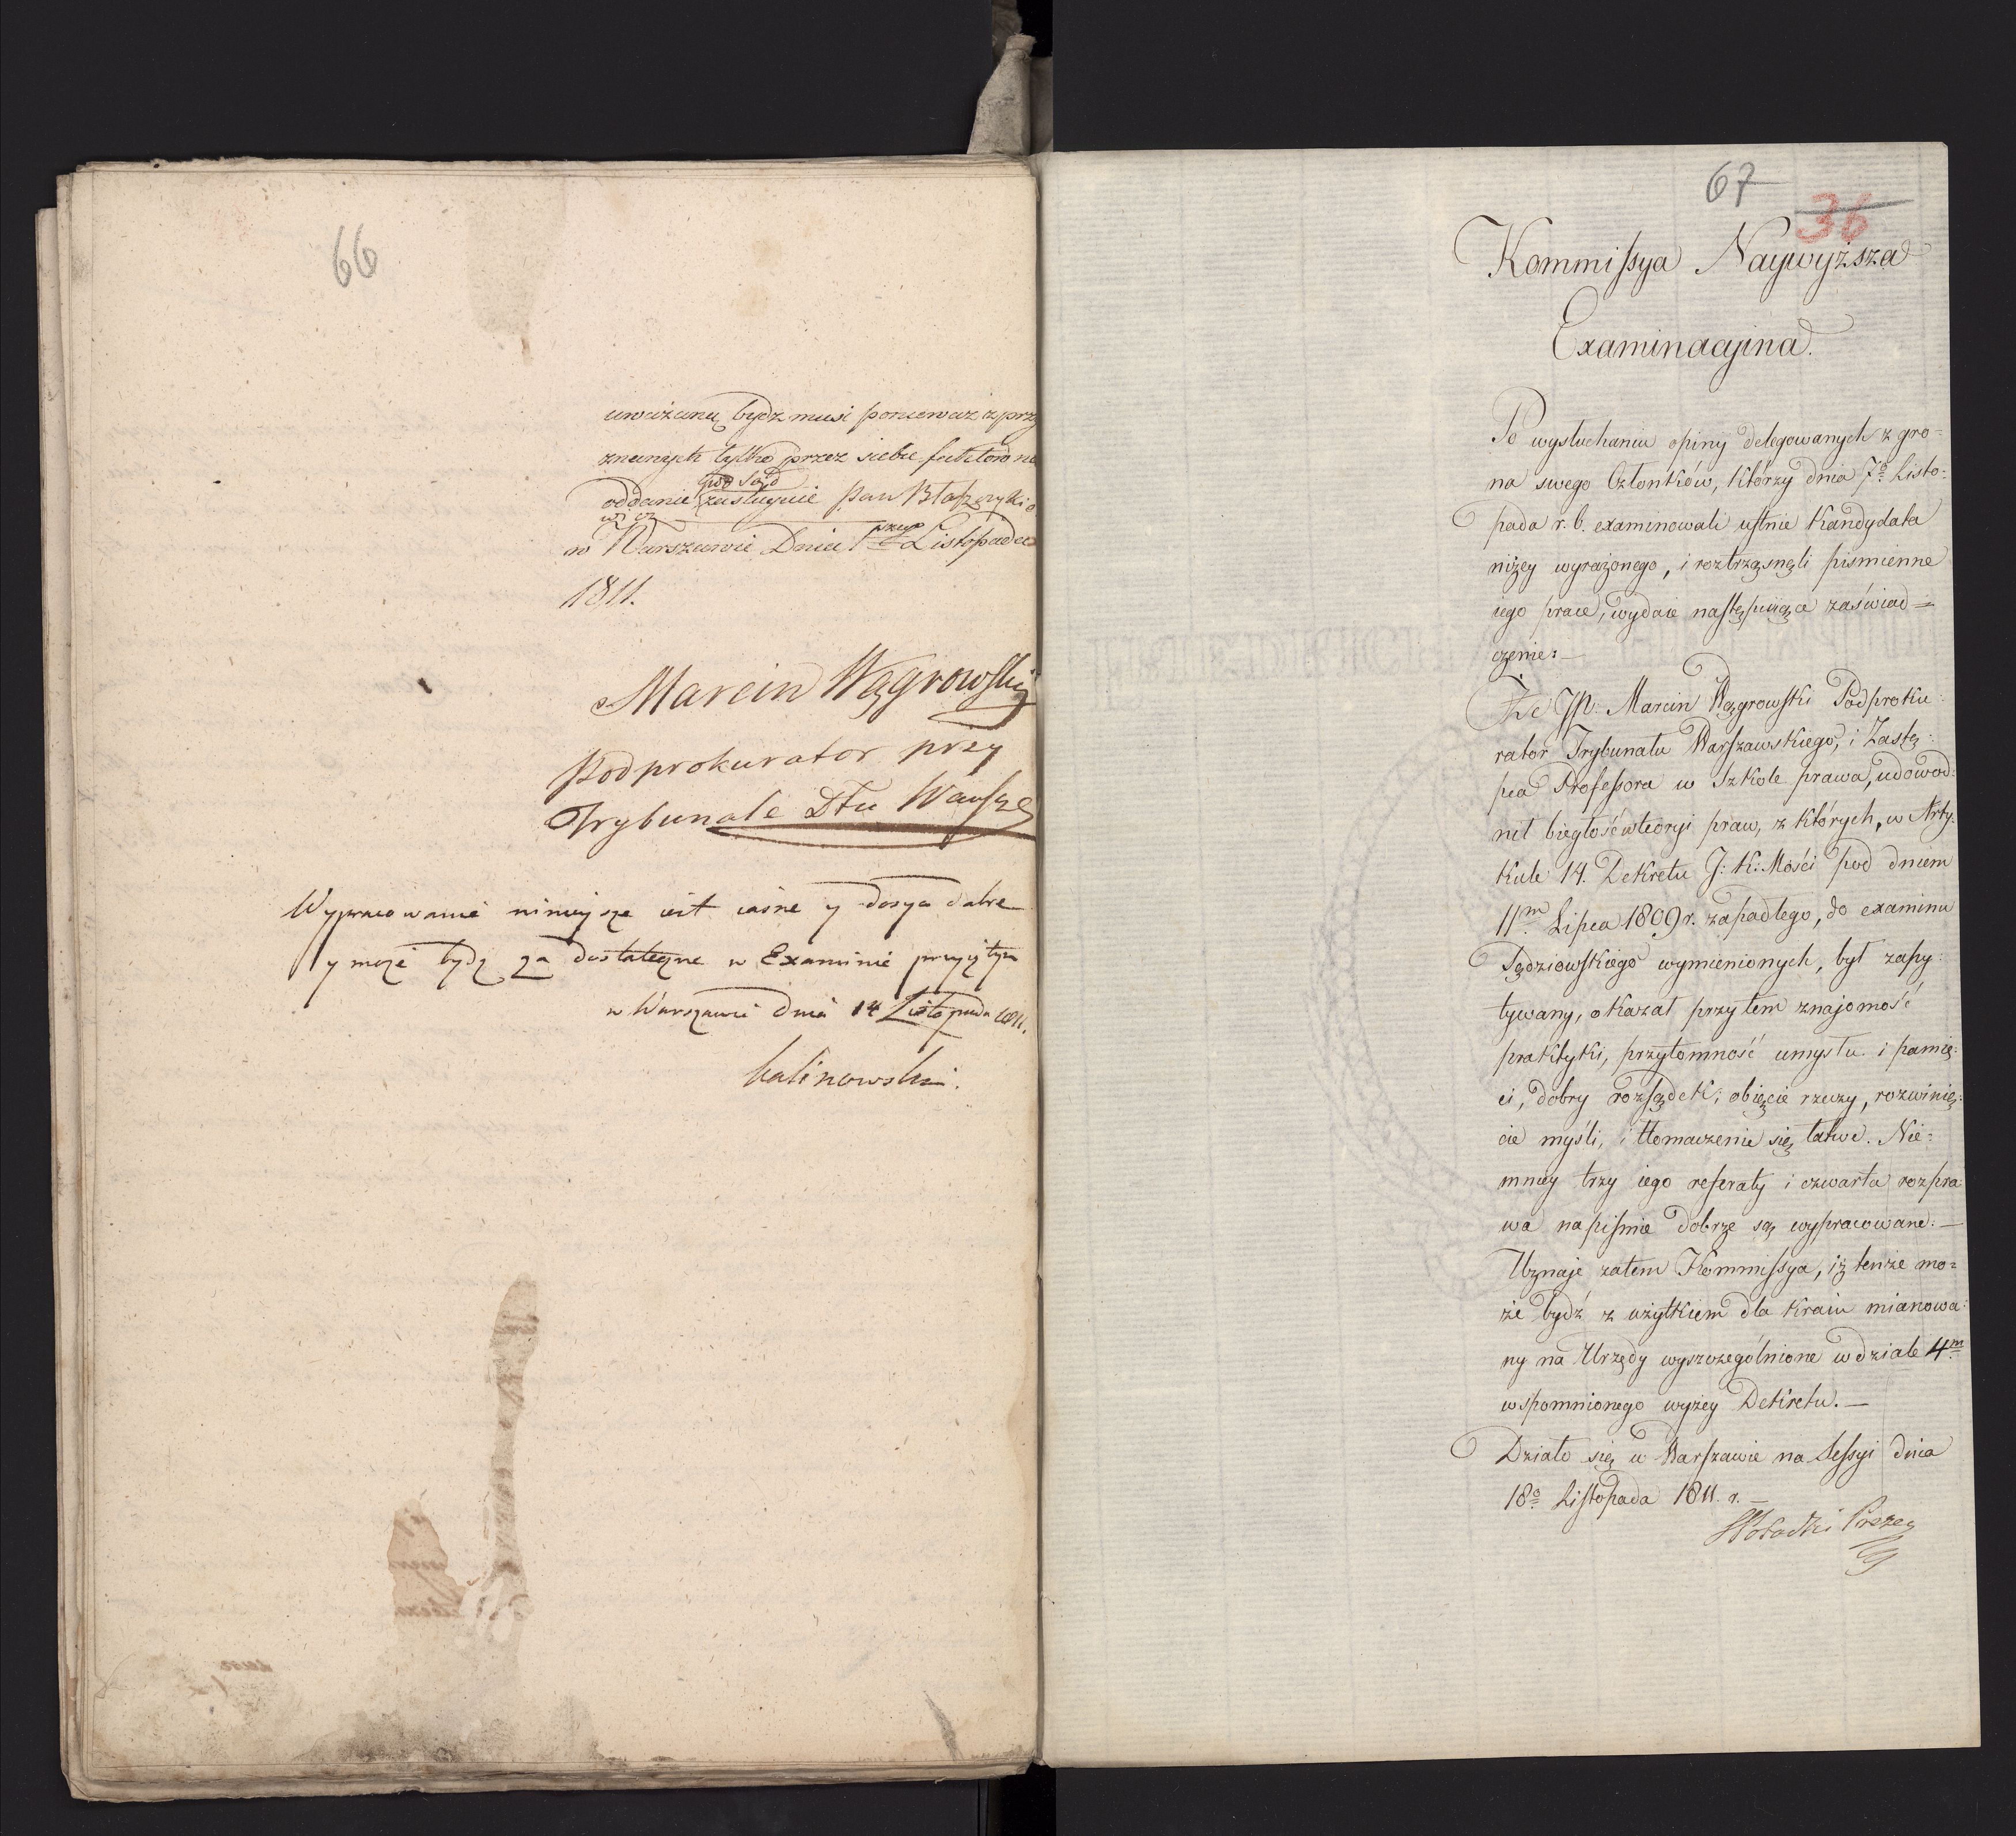 66
uważaną bydź musi ponieważ z przy
znanych tylko przez siebie faktów na
pod Sąd
oddanie zasługuie Pan Błaszczyki
w Warszawie Dnia 1szego Listopada
1811.
Marcin Wągrowski
Podprokurator przy
Trybunale Dtu Warsz
Wypracowanie ninieysze iest iasne y dosyc dobre
y może bydz za dostateczne w Examinie przyiętym
w Warszawie dnia 14 Listopada 1811.
Kalinowski.
67
36
Kommissya Naywyższa
Examinacyina.
Po wysłuchaniu opiny delegowanych z gro=
na swego Członków, którzy dnia 7o Listo=
pada r. b. examinowali ustnie Kandydata
niżey wyrażonego, i roztrząsnęli pismienne
iego prace, wydaie następuiące zaświad=
czenie:—
Że JP. Marcin Wągrowski Podproku=
rator Trybunału Warszawskiego, i Zastę=
pca Professora w Szkole prawa, udowod=
nił biegłość w teoryi praw, z których, w Arty=
kule 14. Dekretu J: K: Mości pod dniem
11m Lipca 1809 r. zapadłego, do examinu
Sędziowskiego wymienionych, był zapy=
tywany, okazał przytem znajomość
praktyki, przytomność umysłu i pamię=
ci, dobry rozsądek, obięcie rzeczy, rozwinię=
cie myśli, i tłomaczenie się łatwe. Nie=
mniey trzy iego referaty i czwarta rozpra
wa na piśmie dobrze są wypracowane.—
Uznaje zatem Kommissya, iż tenże mo=
że bydź z użytkiem dla Kraiu mianowa=
ny na Urzędy wyszczególnione w dziale 4m
wspomnionego wyżey Dekretu.—
Działo się w Warszawie na Sessyi dnia
18o Listopada 1811. r.—
Prezes